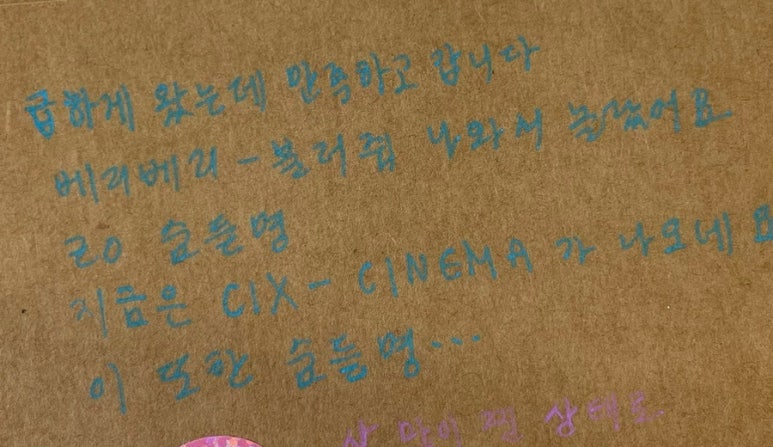 급하게 왔는데 만족하고 갑니다
베리베리 - 불러줘 나와서 놀랐어요
ㄹㅇ 숨듣명
지금은 CIX - CINEMA 가 나오네요
이 또한 숨듣명...
상태로